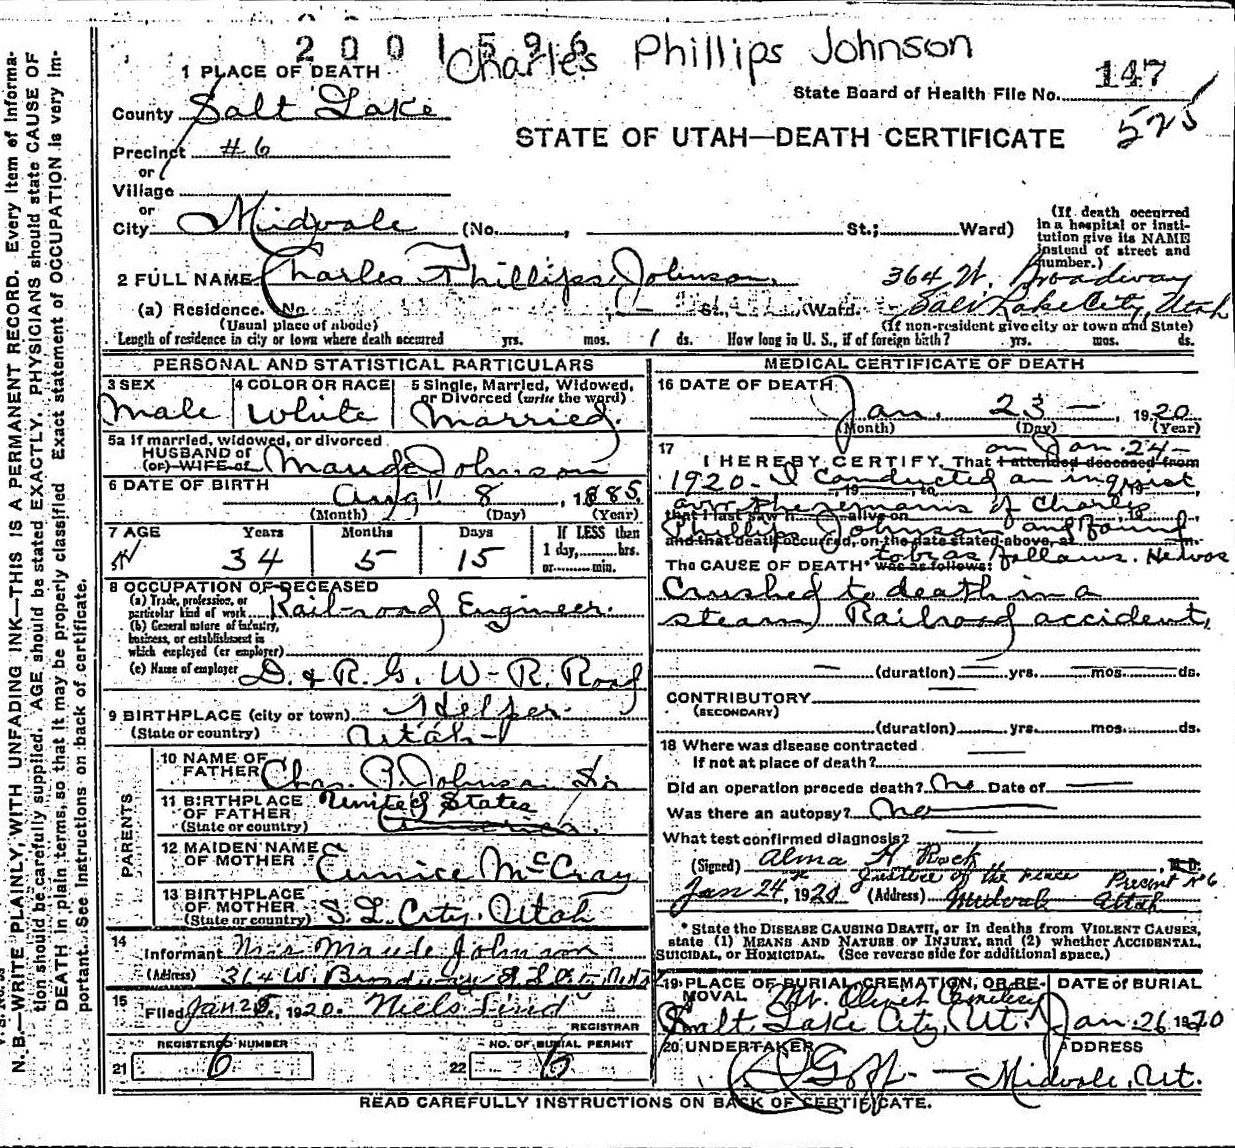 2001596
Charles Phillips Johnson
1 PLACE OF DEATH
147
State Board of Health File No.
525
County Salt Lake
STATE OF UTAH—DEATH CERTIFICATE
Precinct #6
or
Village
or
City Midvale (No. , St.; Ward)
(If death occurred in a hospital or institution give its NAME instead of street and number.)
2 FULL NAME Charles Phillips Johnson
364 W. Broadway
Salt Lake City, Utah
(a) Residence. No. St., Ward.
(Usual place of abode) (If non-resident give city or town and State)
Length of residence in city or town where death occurred yrs. mos. 1 ds. How long in U. S., if of foreign birth? yrs. mos. ds.
PERSONAL AND STATISTICAL PARTICULARS
3 SEX Male
4 COLOR OR RACE White
5 Single, Married, Widowed, or Divorced (write the word) Married
5a If married, widowed, or divorced
HUSBAND of
(or) WIFE of Maude Johnson
6 DATE OF BIRTH Aug 8, 1885
(Month) (Day) (Year)
7 AGE Years Months Days If LESS than
34 5 15 1 day, hrs.
or min.
8 OCCUPATION OF DECEASED
(a) Trade, profession, or particular kind of work Rail-road Engineer.
(b) General nature of industry, business, or establishment in which employed (or employer)
(c) Name of employer D. & R. G. W- R. Road
9 BIRTHPLACE (city or town) Helper
(State or country) Utah
PARENTS
10 NAME OF FATHER Chas. P. Johnson Sr
11 BIRTHPLACE OF FATHER United States
(State or country) America.
12 MAIDEN NAME OF MOTHER Eunice McCray
13 BIRTHPLACE OF MOTHER
(State or country) S. L. City. Utah
14 Informant Mrs Maude Johnson
(Address) 364 W. Broadway
15 Filed Jan 25, 1920. Niels Lind
REGISTRAR
REGISTERED NUMBER NO. OF BURIAL PERMIT
21 6 22 6
MEDICAL CERTIFICATE OF DEATH
16 DATE OF DEATH Jan. 23 — , 1920
(Month) (Day) (Year)
17 on Jan. 24-
I HEREBY CERTIFY, That I attended deceased from
1920- I conducted an inquest
19 , to , 19
over the remains of Charles
that I last saw h alive on
Phillips Johnson and found
and that death occurred, on the date stated above, at m.
to be as follows. He was
The CAUSE OF DEATH* was as follows:
Crushed to death in a
steam Railroad accident,
(duration) yrs. mos. ds.
CONTRIBUTORY
(SECONDARY)
(duration) yrs. mos. ds.
18 Where was disease contracted
If not at place of death?
Did an operation precede death? No Date of
Was there an autopsy? No
What test confirmed diagnosis?
(Signed) Alma H Rock M.D.
Justice of the Peace Precinct No 6
Jan 24, 1920 (Address) Midvale Utah
* State the DISEASE CAUSING DEATH, or in deaths from VIOLENT CAUSES, state (1) MEANS AND NATURE OF INJURY, and (2) whether ACCIDENTAL, SUICIDAL, or HOMICIDAL. (See reverse side for additional space.)
19 PLACE OF BURIAL, CREMATION, OR REMOVAL Mt. Olivet Cemetery
Salt Lake City, Ut.
DATE of BURIAL
Jan. 26 1920
20 UNDERTAKER Goff
ADDRESS Midvale, Ut.
READ CAREFULLY INSTRUCTIONS ON BACK OF CERTIFICATE.
N. B.—WRITE PLAINLY, WITH UNFADING INK—THIS IS A PERMANENT RECORD. Every item of information should be carefully supplied. AGE should be stated EXACTLY. PHYSICIANS should state CAUSE OF DEATH in plain terms, so that it may be properly classified. Exact statement of OCCUPATION is very important. See instructions on back of certificate.